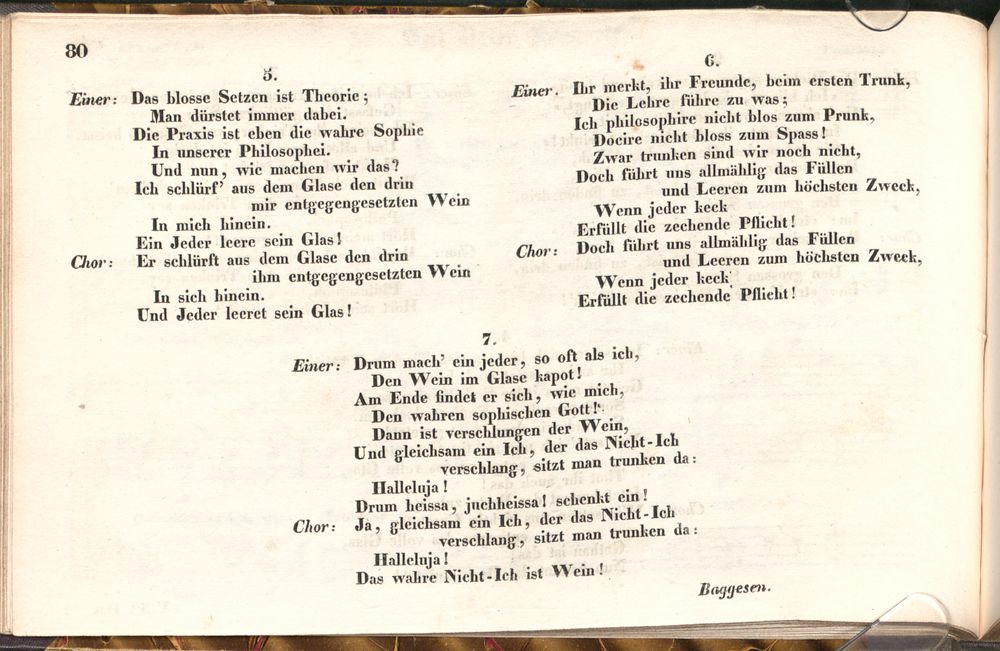 80
5.
Einer: Das blosse Setzen ist Theorie;
Man dürstet immer dabei.
Die Praxis ist eben die wahre Sophie
In unserer Philosophei.
Und nun, wie machen wir das?
Ich schlürf' aus dem Glase den drin
mir entgegengesetzten Wein
In mich hinein.
Ein Jeder leere sein Glas!
Chor: Er schlürft aus dem Glase den drin
ihm entgegengesetzten Wein
In sich hinein.
Und Jeder leeret sein Glas!
6.
Einer. Ihr merkt, ihr Freunde, beim ersten Trunk,
Die Lehre führe zu was;
Ich philosophire nicht blos zum Prunk,
Docire nicht bloss zum Spass!
Zwar trunken sind wir noch nicht,
Doch führt uns allmählig das Füllen
und Leeren zum höchsten Zweck,
Wenn jeder keck
Erfüllt die zechende Pflicht!
Chor: Doch führt uns allmählig das Füllen
und Leeren zum höchsten Zweck,
Wenn jeder keck
Erfüllt die zechende Pflicht!
7.
Einer: Drum mach' ein jeder, so oft als ich,
Den Wein im Glase kapot!
Am Ende findet er sich, wie mich,
Den wahren sophischen Gott!
Dann ist verschlungen der Wein,
Und gleichsam ein Ich, der das Nicht-Ich
verschlang, sitzt man trunken da:
Halleluja!
Drum heissa, juchheissa! schenkt ein!
Chor: Ja, gleichsam ein Ich, der das Nicht-Ich
verschlang, sitzt man trunken da:
Halleluja!
Das wahre Nicht-Ich ist Wein!
Baggesen.